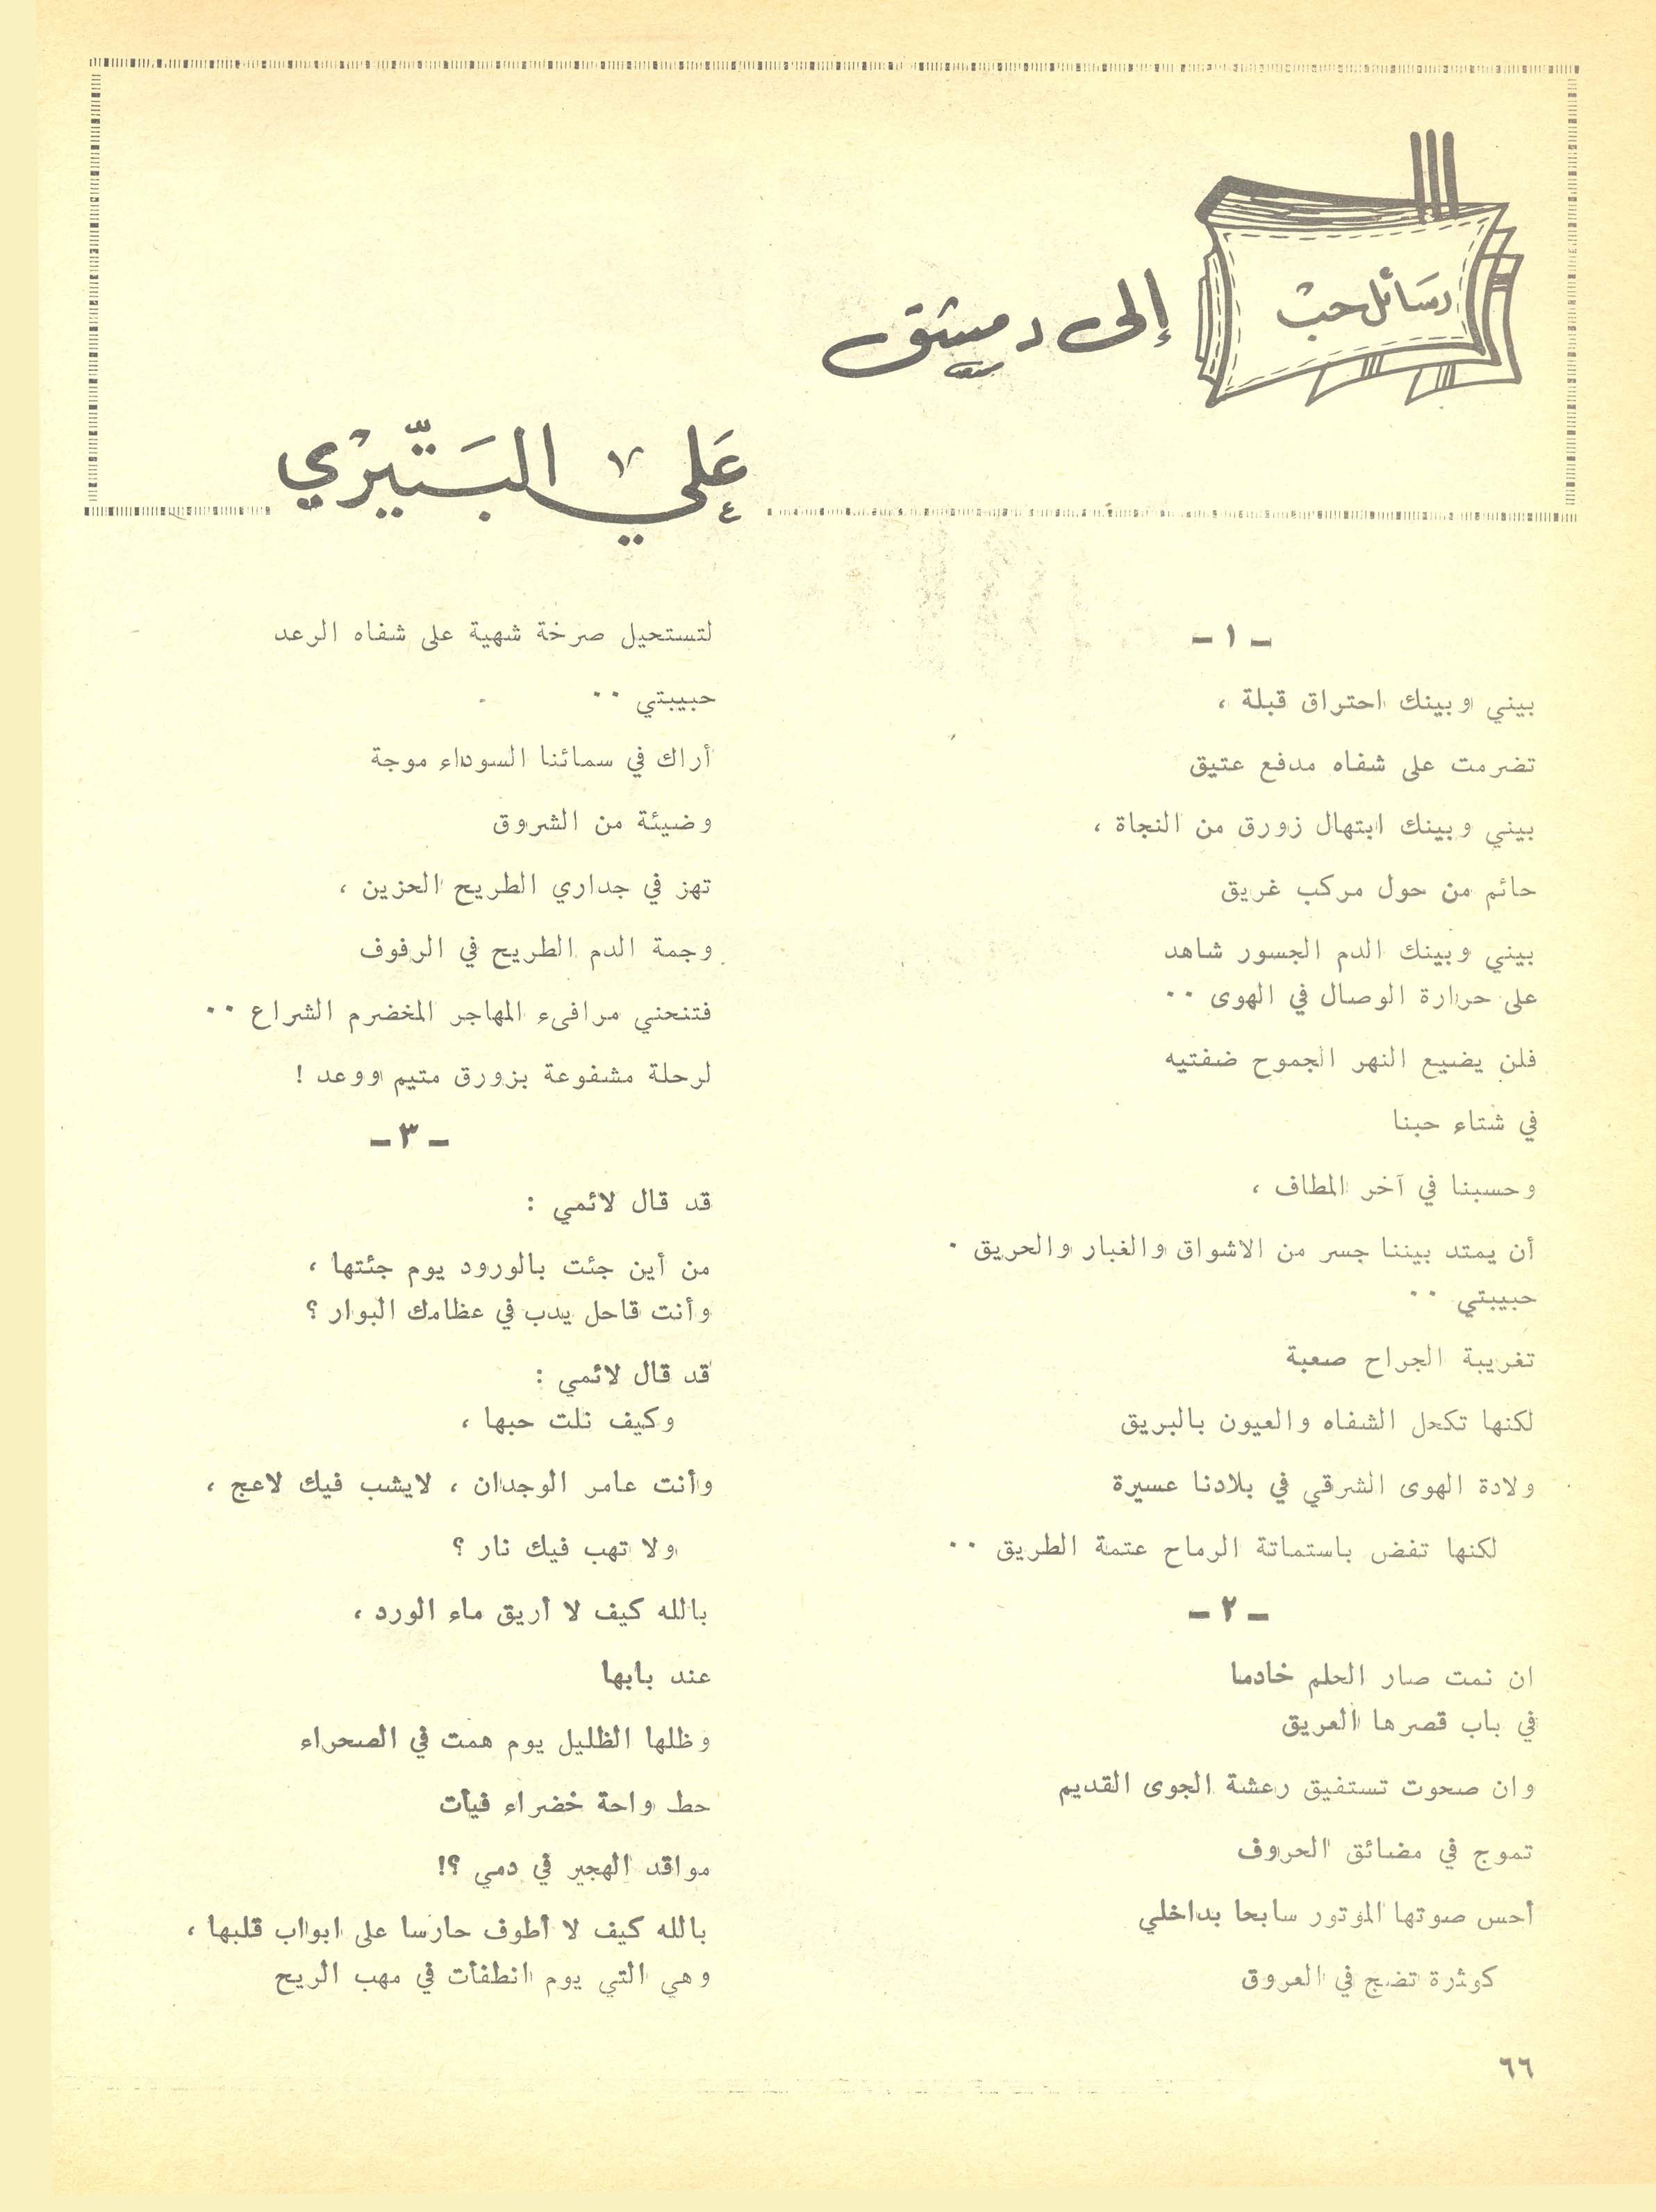 رسائل حب
إلى دمشق
علي البتيري
ـ ١ ـ
بيني وبينك احتراق قبلة ،
تضرمت على شفاه مدفع عتيق
بيني وبينك ابتهال زورق من النجاة ،
حائم من حول مركب غريق
بيني وبينك الدم الجسور شاهد
على حرارة الوصال في الهوى ٠٠
فلن يضيع النهر الجموح ضفتيه
في شتاء حبنا
وحسبنا في آخر المطاف ،
أن يمتد بيننا جسر من الاشواق والغبار والحريق ٠
حبيبتي ٠٠
تغريبة الجراح صعبة
لكنها تكحل الشفاه والعيون بالبريق
ولادة الهوى الشرقي في بلادنا عسيرة
لكنها تفض باستماتة الرماح عتمة الطريق ٠٠
ـ ٢ ـ
ان نمت صار الحلم خادما
في باب قصرها العريق
وان صحوت تستفيق رعشة الجوى القديم
تموج في مضائق الحروف
أحس صوتها الموتور سابحا بداخلي
كوثرة تضج في العروق
لتستحيل صرخة شهية على شفاه الرعد
حبيبتي ٠٠
أراك في سمائنا السوداء موجة
وضيئة من الشروق
تهز في جداري الطريح الحزين ،
وجمة الدم الطريح في الرفوف
فتنحني مرافىء المهاجر المخضرم الشراع ٠٠
لرحلة مشفوعة بزورق متيم ووعد !
ـ ٣ ـ
قد قال لائمي :
من أين جئت بالورود يوم جئتها ،
وأنت قاحل يدب في عظامك البوار ؟
قد قال لائمي :
وكيف نلت حبها ،
وأنت عامر الوجدان ، لايشب فيك لاعج ،
ولا تهب فيك نار ؟
بالله كيف لا أريق ماء الورد ،
عند بابها
وظلها الظليل يوم همت في الصحراء
حط واحة خضراء فيأت
مواقد الهجير في دمي ؟!
بالله كيف لا أطوف حارسا على ابواب قلبها ،
وهي التي يوم انطفأت في مهب الريح
٦٦